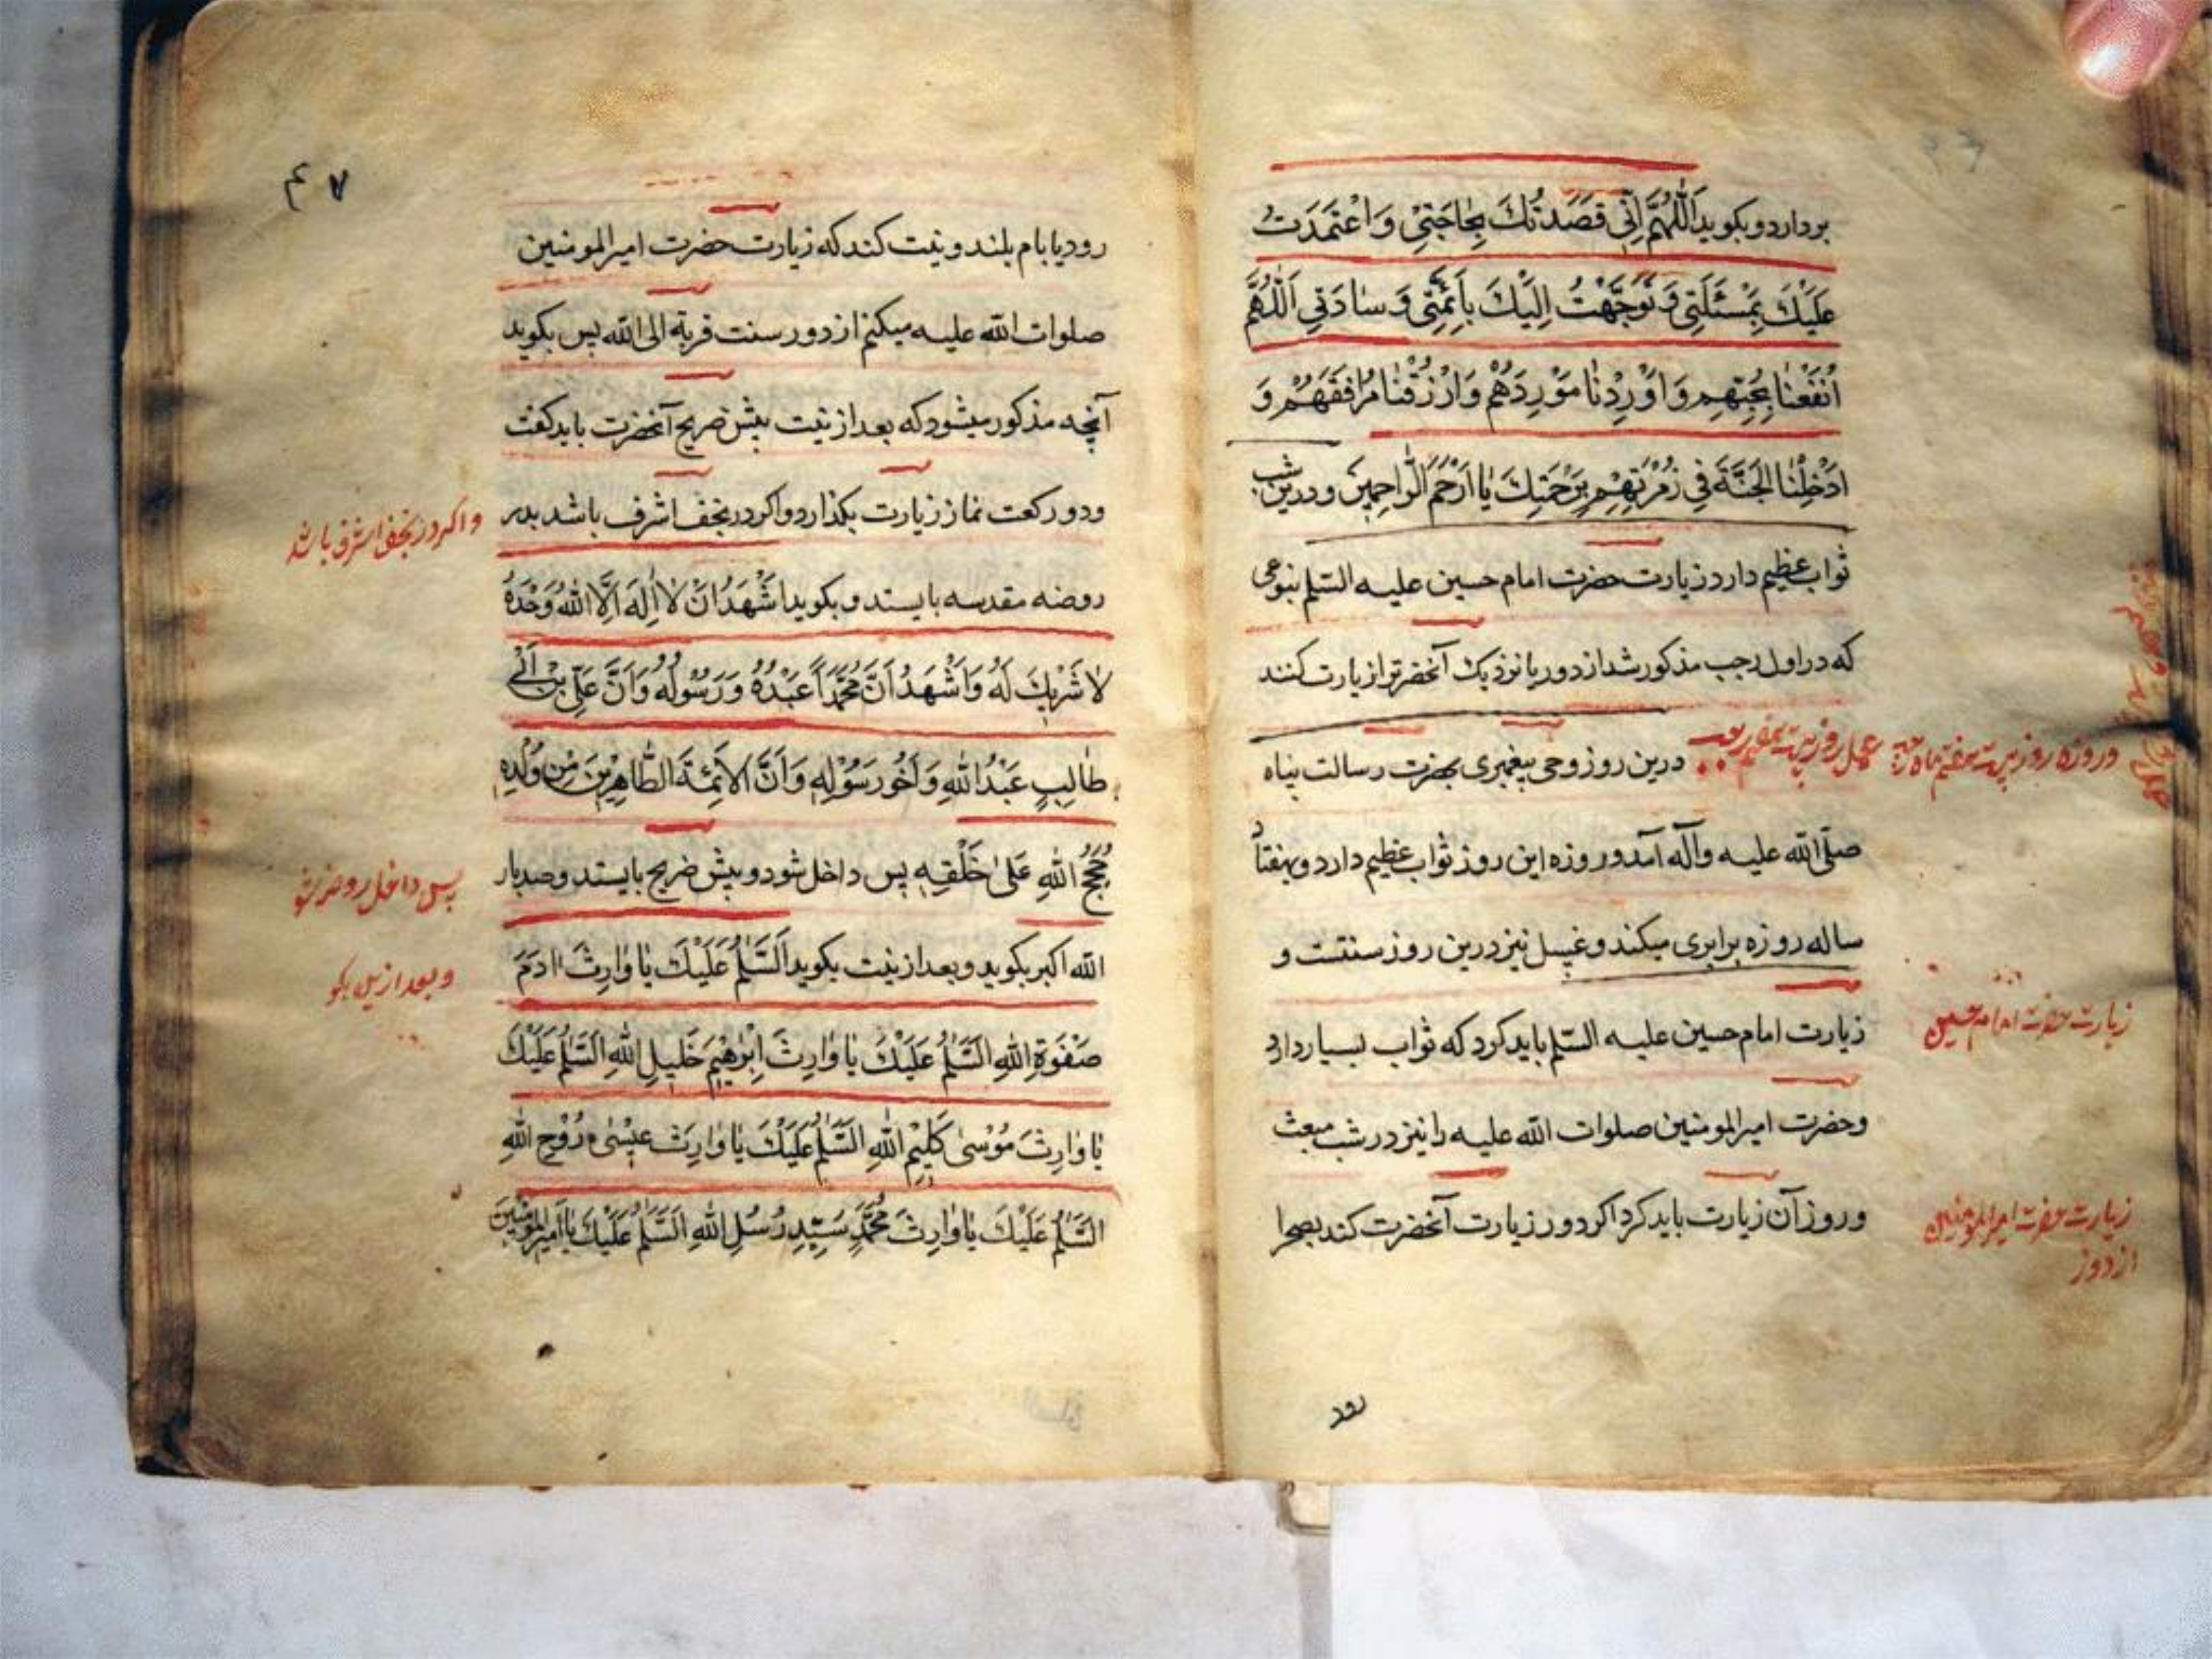 بردارد و بکوید اَللّٰهُمَّ اِنّی قَصَدْتُكَ بِحٰاجَتیٖ وَ اعْتَمَدْتُ
عَلَیْكَ بِمَسْئَلَتیٖ وَ تَوَجَّهْتُ اِلَیْكَ بِاَئِمَّتیٖ وَ سٰادَتیٖ اَللّٰهُمَّ
انْفَعْنٰا بِحُبِّهِمْ وَ اَوْرِدْنٰا مَوْرِدَهُمْ وَ ارْزُقْنٰا مُرٰافَقَهُمْ وَ
اَدْخِلْنَا الْجَنَّةَ فیٖ زُمْرَتِهِمْ بِرَحْمَتِكَ یٰا اَرْحَمَ الرّٰاحِمیٖنَ و درین شب
ثواب عظیم دارد زیارت حضرت امام حسین علیه السّلم بنوعی
که در اول رجب مذکور شد از دور یا نزدیک آنحضرترا زیارت کنند
عمل روز بیست هفتم رجب درین روز وحی پیغمبری بحضرت رسالت پناه
و روزه روز بیست هفتم ماه رجب
صلّی الله علیه وآله آمد و روزه این روز ثواب عظیم دارد و بهفتاد
ساله روزه برابری میکند و غسل نیز درین روز سنتست و
زیارت امام حسین علیه السّلم باید کرد که ثواب بسیار دارد
زیارت حضرت امام حسین
وحضرت امیرالمومنین صلوات الله علیه را نیز در شب مبعث
و روز آن زیارت باید کرد اکر دور زیارت آنحضرت کند بصحرا
زیارت حضرت امیرالمومنین
از دور
رود
۴۷
رود یا بام بلند و نیت کند که زیارت حضرت امیرالمومنین
صلوات الله علیه میکنم از دور سنت قربة الی الله پس بکوید
آنچه مذکور میشود که بعد از نیت پیش ضریح آنحضرت باید کفت
ودو رکعت نماز زیارت بکذارد واکر در نجف اشرف باشد بدر
واکر در نجف اشرف باشد
روضه مقدسه بایستد و بکوید اَشْهَدُ اَنْ لٰا اِلٰهَ اِلَّا اللهُ وَحْدَهُ
لٰا شَرٖیكَ لَهُ وَ اَشْهَدُ اَنَّ مُحَمَّداً عَبْدُهُ وَ رَسُولُهُ وَ اَنَّ عَلِیَّ بْنَ اَبیٖ
طٰالِبٍ عَبْدُ اللهِ وَ اَخُو رَسُوْلِهِ وَ اَنَّ الْاَئِمَّةَ الطّٰاهِرٖینَ مِنْ وُلْدِهِ
حُجَجُ اللهِ عَلیٰ خَلْقِهِ پس داخل شود و پیش ضریح بایستد وصد بار
پس داخل روضه شو
الله اکبر بکوید و بعد از نیت بکوید اَلسَّلٰمُ عَلَیْكَ یٰا وٰارِثَ اٰدَمَ
و بعد ازین بکو
صَفْوَةِ اللهِ اَلسَّلٰمُ عَلَیْكَ یٰا وٰارِثَ اِبْرٰهٖیمَ خَلٖیلِ اللهِ اَلسَّلٰمُ عَلَیْكَ
یٰا وٰارِثَ مُوْسیٰ كَلٖیمِ اللهِ اَلسَّلٰمُ عَلَیْكَ یٰا وٰارِثَ عیٖسیٰ رُوْحِ اللهِ
اَلسَّلٰمُ عَلَیْكَ یٰا وٰارِثَ مُحَمَّدٍ سَیِّدِ رُسُلِ اللهِ اَلسَّلٰمُ عَلَیْكَ یٰا اَمیٖرَالْمُؤْمِنیٖنَ